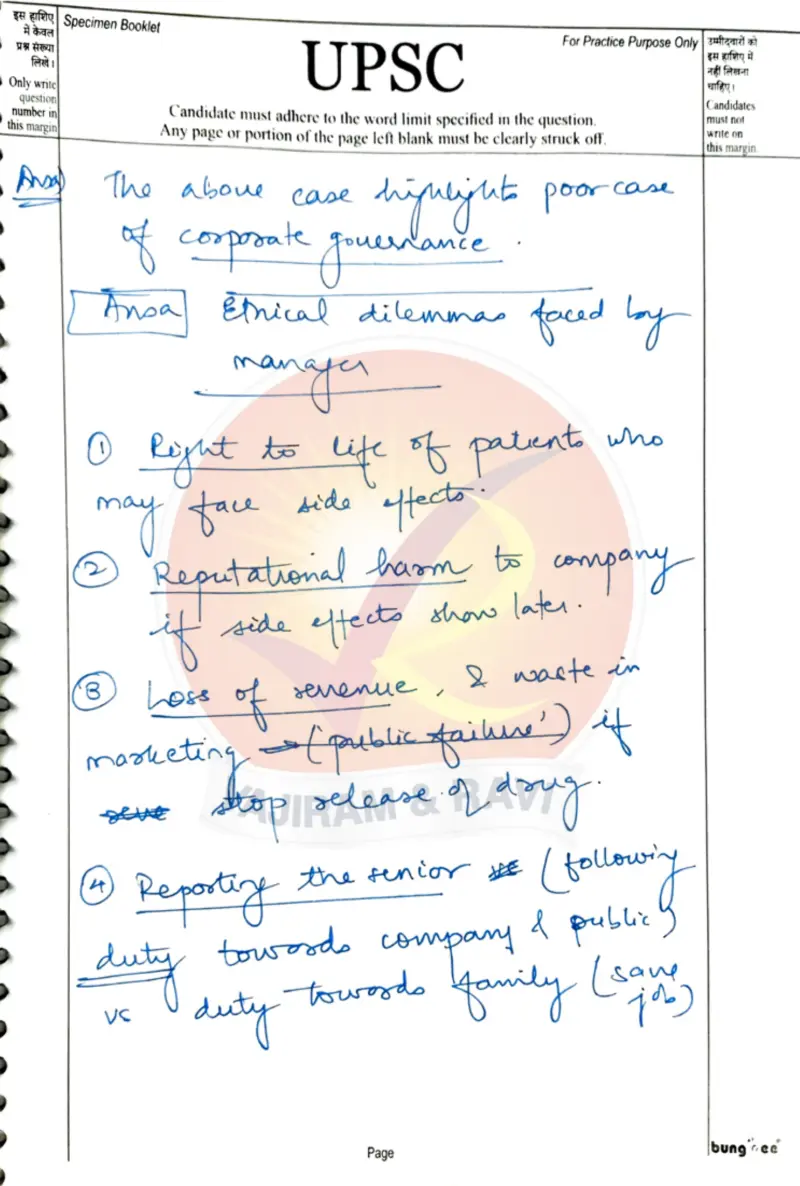 इस हाशिए
में केवल
प्रश्न संख्या
लिखें।
Only write
question
number in
this margin
Specimen Booklet
For Practice Purpose Only
UPSC
Candidate must adhere to the word limit specified in the question.
Any page or portion of the page left blank must be clearly struck off.
उम्मीदवारों को
इस हाशिए में
नहीं लिखना
चाहिए।
Candidates
must not
write on
this margin
Ansa) The above case highlights poor case
of corporate governance.
Ansa Ethical dilemmas faced by
manager
① Right to life of patients who
may face side effects.
② Reputational harm to company
if side effects show later.
③ Loss of revenue, & waste in
marketing ('public failure') if
stop release of drug.
④ Reporting the senior (following
duty towards company & public)
vs duty towards family (save
job)
VAJIRAM & RAVI
Page